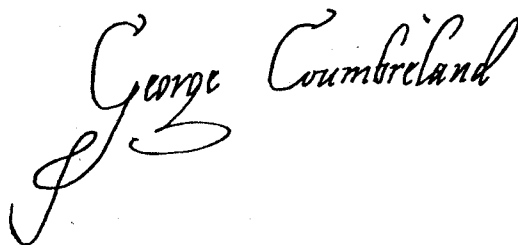 George Coumbreland